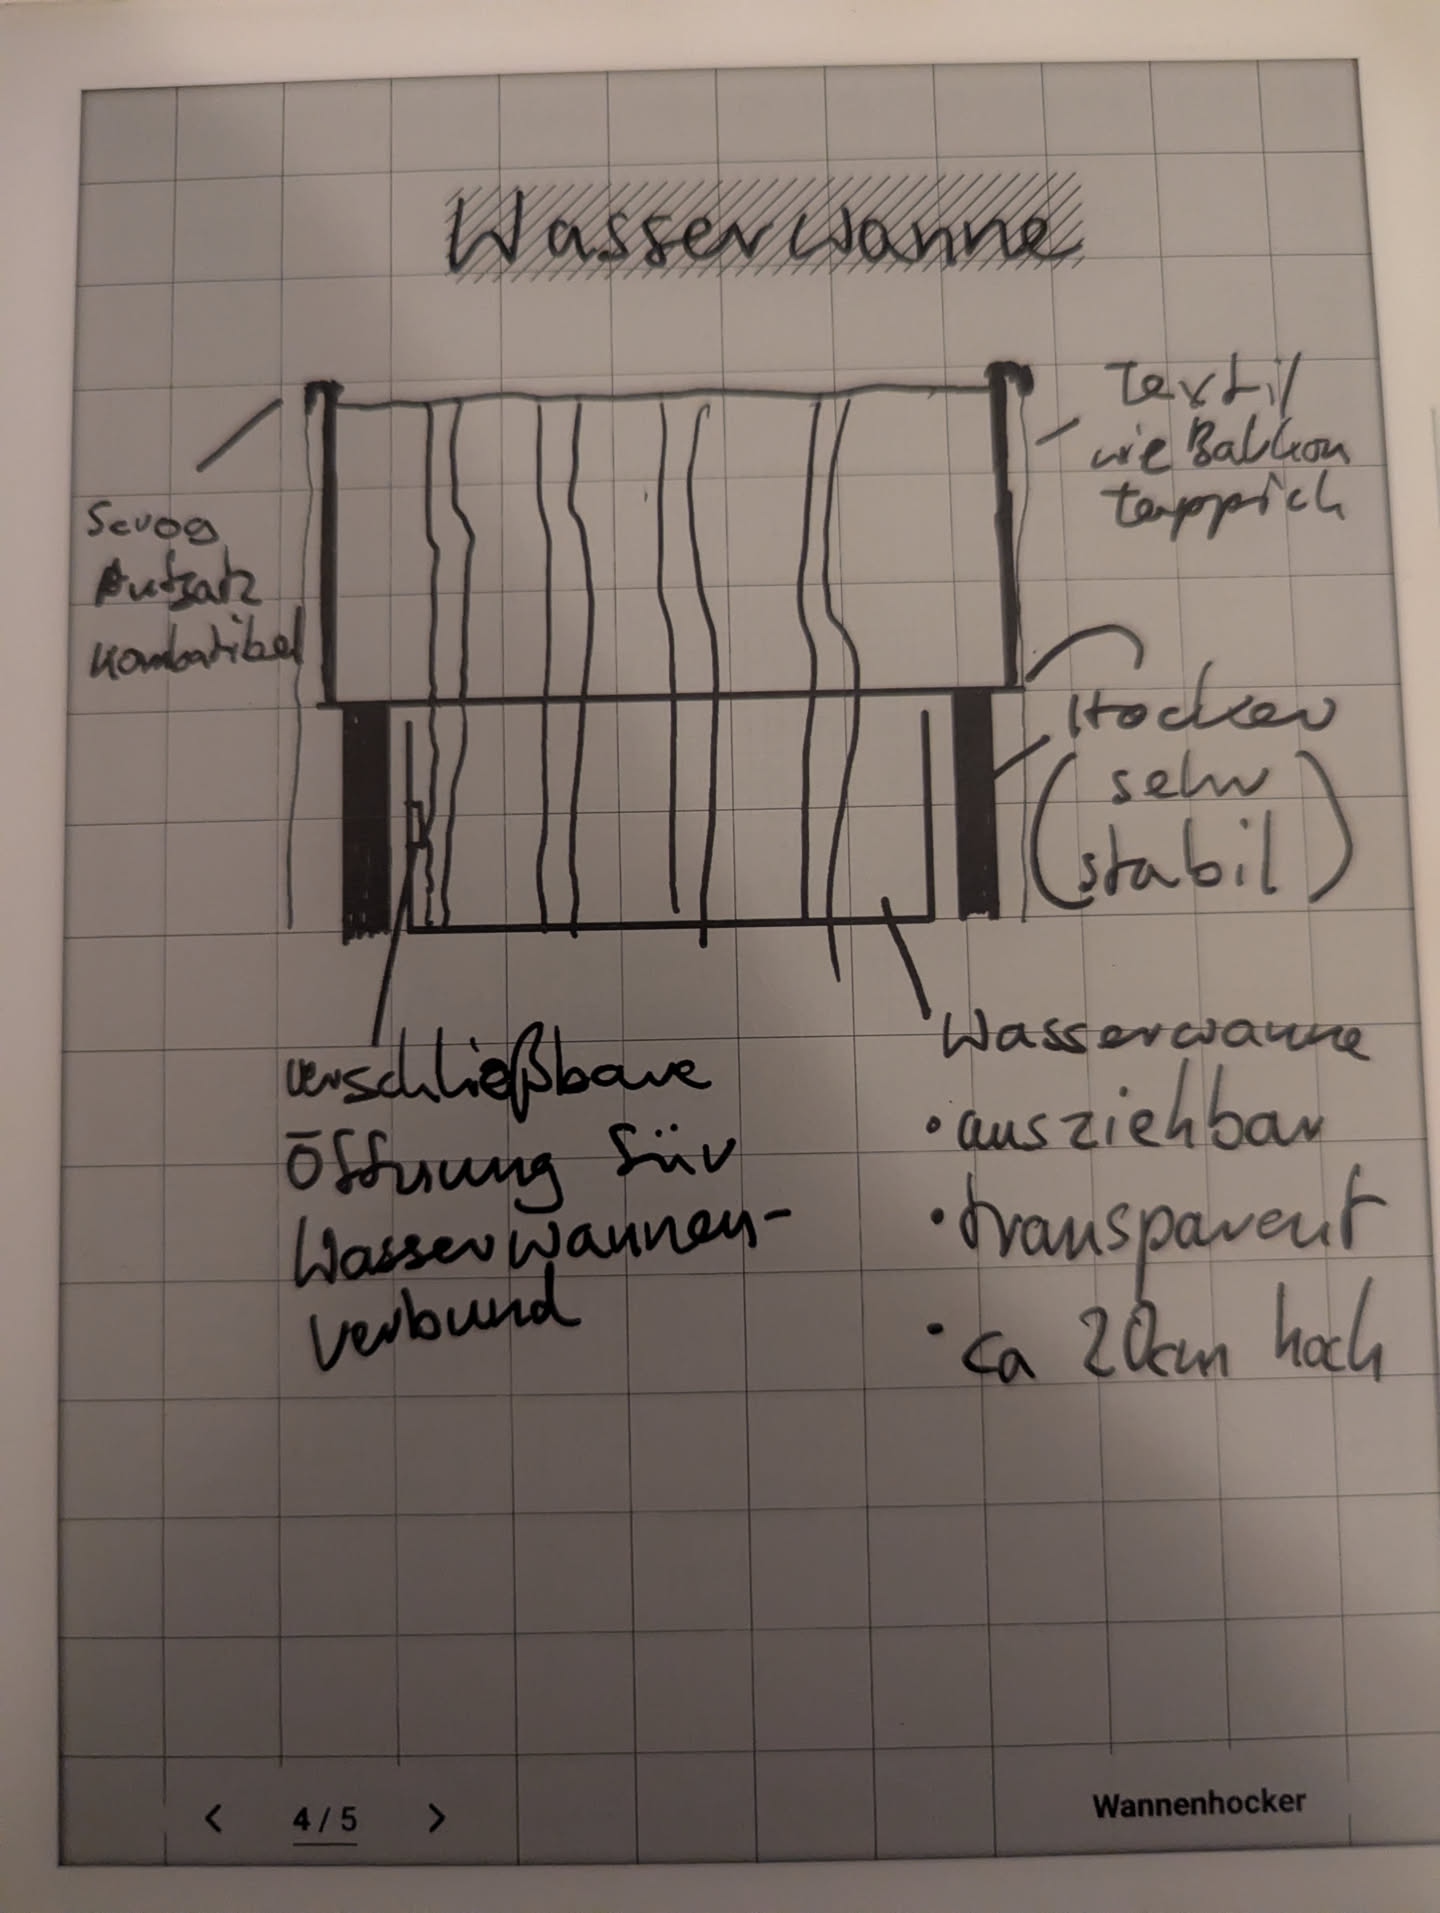 Wasserwanne
Textil
wie Balkon
teppich
Sevog
Aufsatz
kombatibel
Hocker
(sehr
stabil)
verschließbare
Öffnung für
Wasserwannen-
verbund
Wasserwanne
• ausziehbar
• transparent
• ca 20cm hoch
< 4/5 >
Wannenhocker